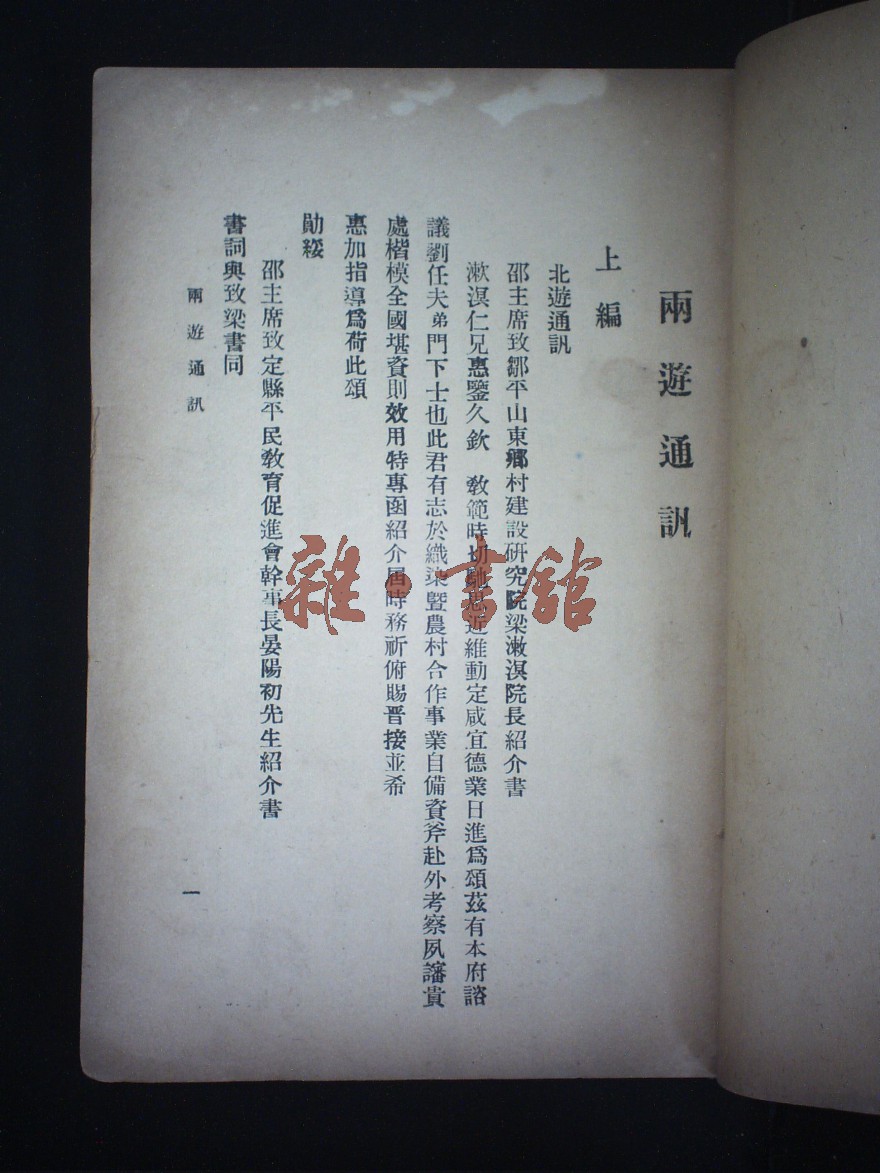 兩遊通訊
上編
北遊通訊
邵主席致鄒平山東鄉村建設硏究院梁漱溟院長紹介書
漱溟仁兄惠鑒久欽 敎範時切馳思近維動定咸宜德業日進爲頌茲有本府諮
議劉任夫弟門下士也此君有志於織染曁農村合作事業自備資斧赴外考察夙讅貴
處楷模全國堪資則效用特專函紹介屆時務祈俯賜晋接並希
惠加指導爲荷此頌
勛綏
邵主席致定縣平民敎育促進會幹事長晏陽初先生紹介書
書詞與致梁書同
兩遊通訊
一
雜·書館